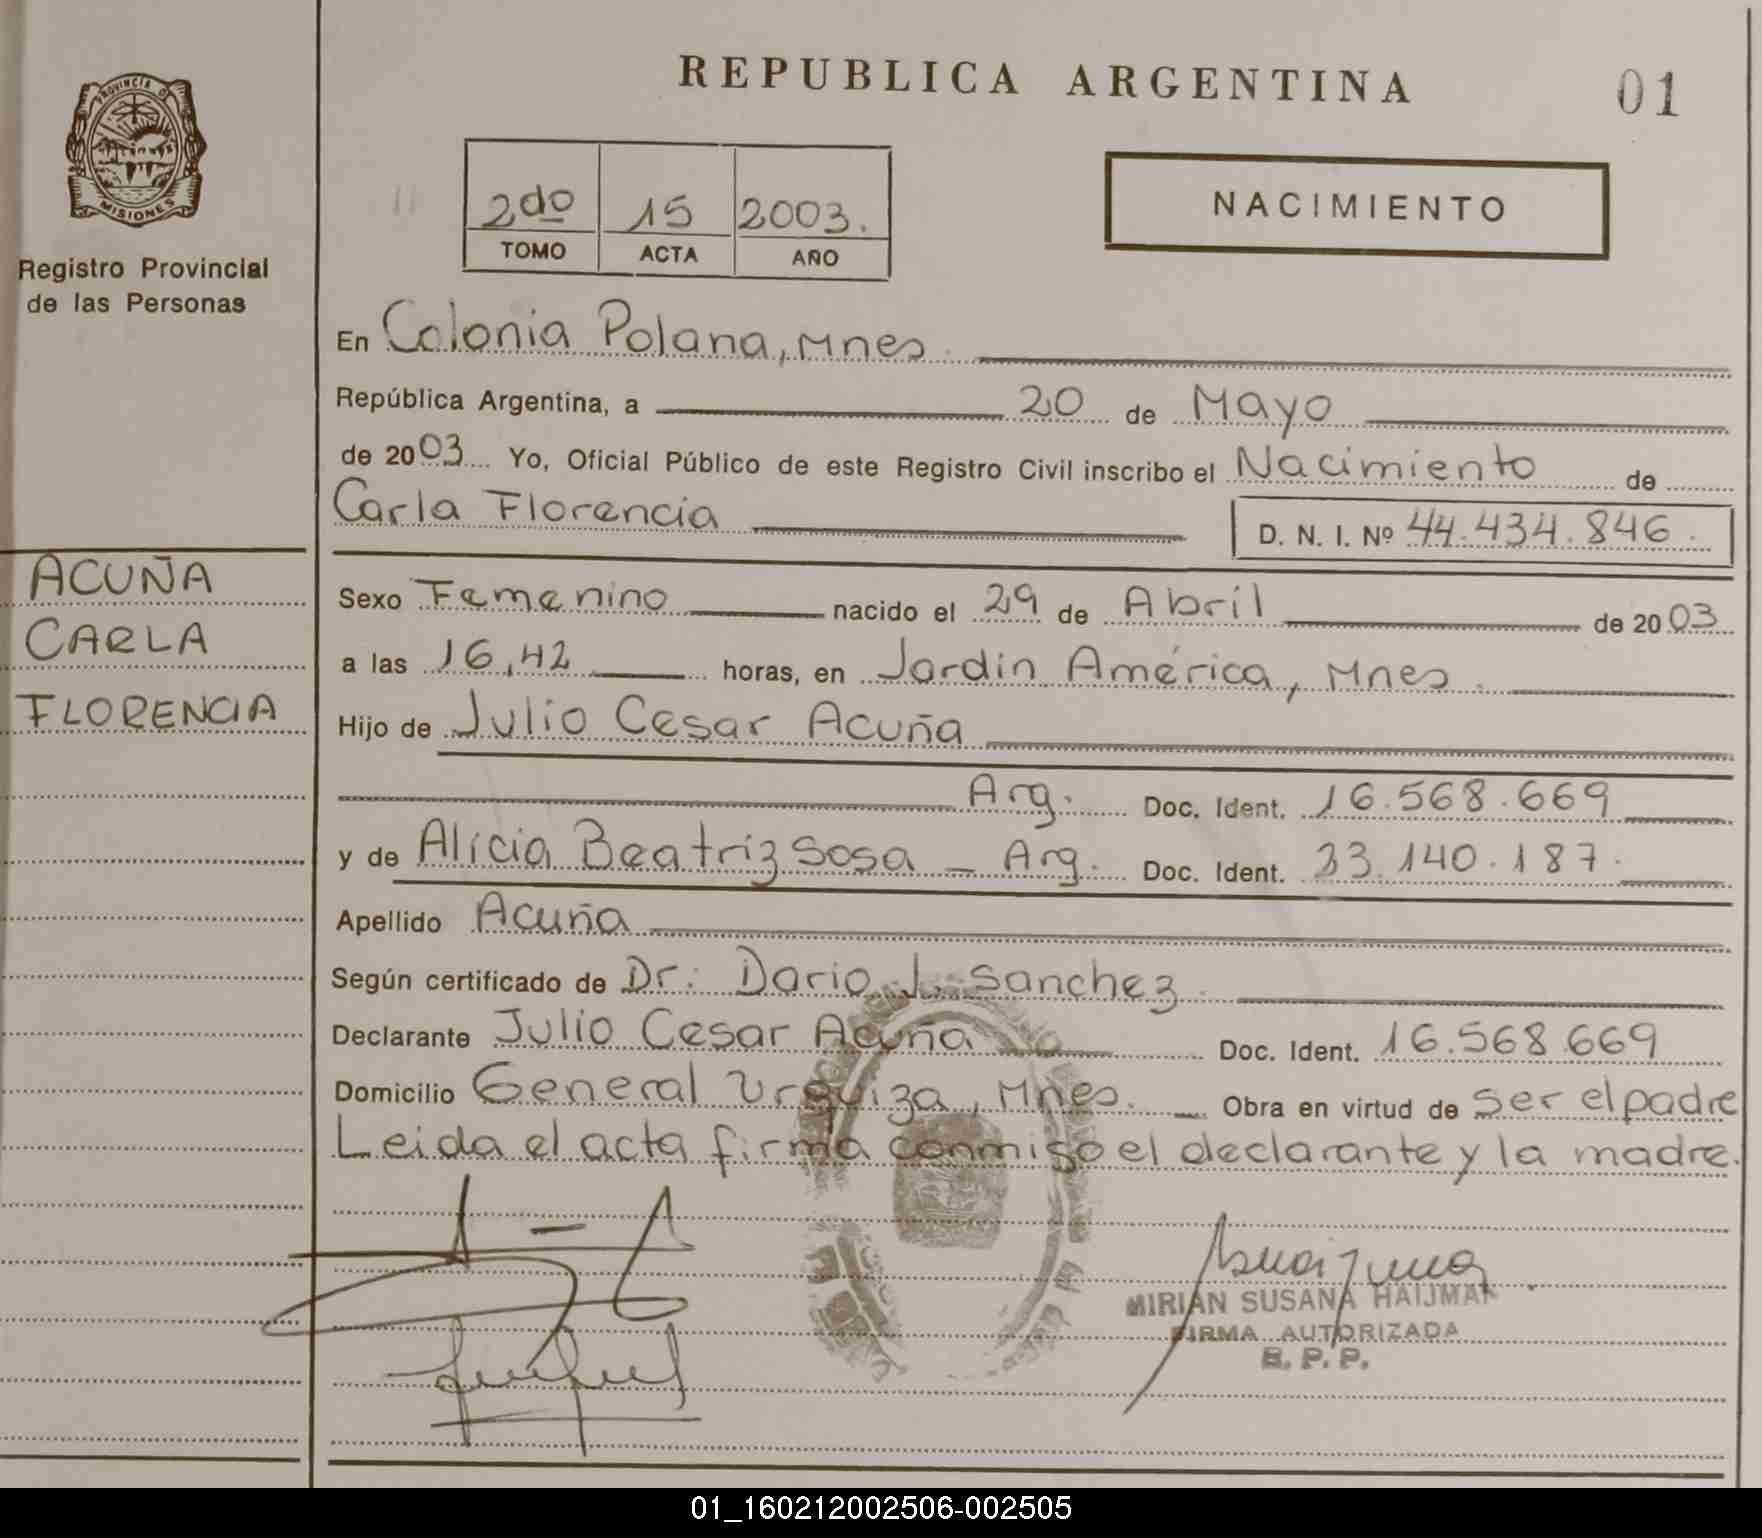 REPUBLICA ARGENTINA
01
PROVINCIA DE
MISIONES
Registro Provincial
de las Personas
2do 15 2003.
TOMO ACTA AÑO
NACIMIENTO
En Colonia Polana, Mnes.
República Argentina, a 20 de Mayo
de 2003 Yo, Oficial Público de este Registro Civil inscribo el Nacimiento de
Carla Florencia D. N. I. Nº 44.434.846.
ACUÑA
CARLA
FLORENCIA
Sexo Femenino nacido el 29 de Abril de 2003
a las 16,42 horas, en Jardin América, Mnes.
Hijo de Julio Cesar Acuña
Arg. Doc. Ident. 16.568.669
y de Alicia Beatriz Sosa - Arg. Doc. Ident. 33.140.187.
Apellido Acuña
Según certificado de Dr. Dario J. Sanchez
Declarante Julio Cesar Acuña Doc. Ident. 16.568.669
Domicilio General Urquiza, Mnes. Obra en virtud de ser el padre
Leida el acta firma conmigo el declarante y la madre.
MIRIAN SUSANA HAIJMAN
FIRMA AUTORIZADA
R. P. P.
01_160212002506-002505